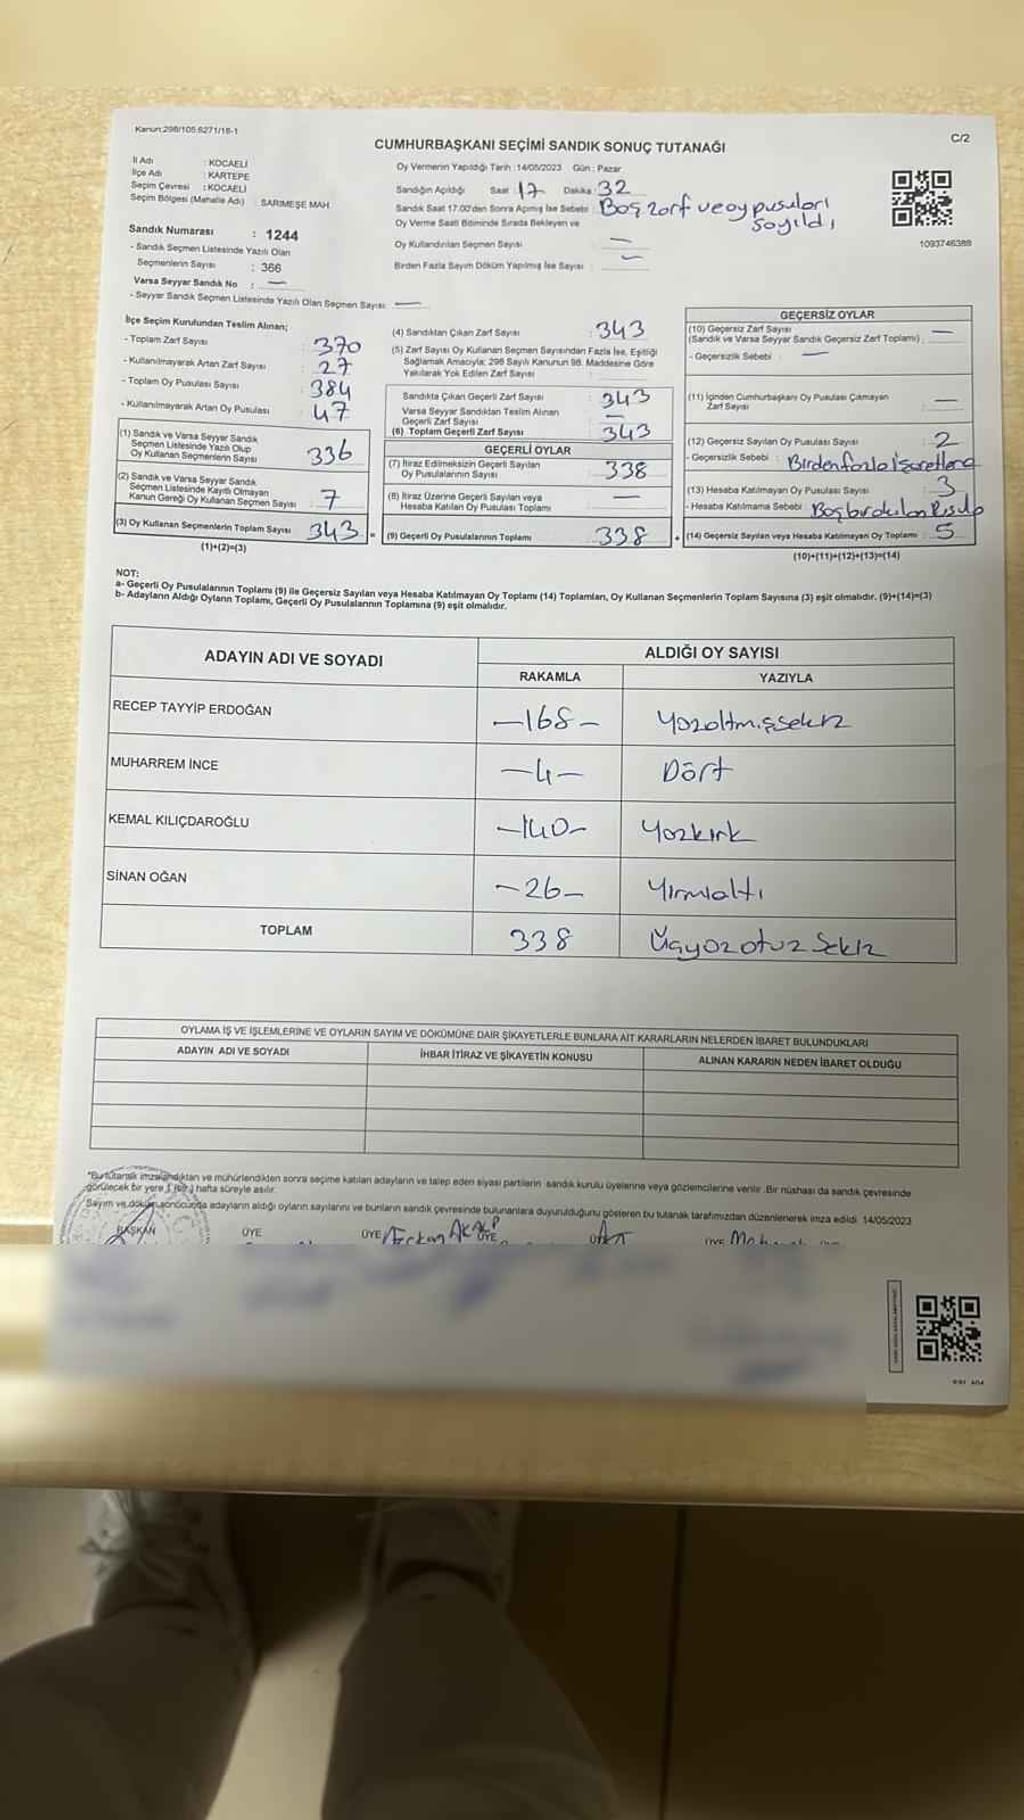 Kanun:298/105.6271/16-1
C/2
CUMHURBAŞKANI SEÇİMİ SANDIK SONUÇ TUTANAĞI
İl Adı : KOCAELİ
İlçe Adı : KARTEPE
Seçim Çevresi : KOCAELİ
Seçim Bölgesi (Mahalle Adı) : SARIMEŞE MAH.
Sandık Numarası : 1244
- Sandık Seçmen Listesinde Yazılı Olan
Seçmenlerin Sayısı : 366
Varsa Seyyar Sandık No : —
- Seyyar Sandık Seçmen Listesinde Yazılı Olan Seçmen Sayısı: —
Oy Vermenin Yapıldığı Tarih :14/05/2023 Gün : Pazar
Sandığın Açıldığı Saat : 17 Dakika : 32
Sandık Saat 17.00'den Sonra Açılmış İse Sebebi : Boş zarf ve oy pusulaları
sayıldı
Oy Verme Saati Bitiminde Sırada Bekleyen ve
Oy Kullandırılan Seçmen Sayısı : —
Birden Fazla Sayım Döküm Yapılmış İse Sayısı : —
1093746388
İlçe Seçim Kurulundan Teslim Alınan;
- Toplam Zarf Sayısı : 370
- Kullanılmayarak Artan Zarf Sayısı : 27
- Toplam Oy Pusulası Sayısı : 384
- Kullanılmayarak Artan Oy Pusulası : 47
(1) Sandık ve Varsa Seyyar Sandık
Seçmen Listesinde Yazılı Olup
Oy Kullanan Seçmenlerin Sayısı : 336
(2) Sandık ve Varsa Seyyar Sandık
Seçmen Listesinde Kayıtlı Olmayan
Kanun Gereği Oy Kullanan Seçmen Sayısı : 7
(3) Oy Kullanan Seçmenlerin Toplam Sayısı : 343 =
(1)+(2)=(3)
(4) Sandıktan Çıkan Zarf Sayısı : 343
(5) Zarf Sayısı Oy Kullanan Seçmen Sayısından Fazla İse, Eşitliği
Sağlamak Amacıyla; 298 Sayılı Kanunun 98. Maddesine Göre
Yakılarak Yok Edilen Zarf Sayısı :
Sandıkta Çıkan Geçerli Zarf Sayısı : 343
Varsa Seyyar Sandıktan Teslim Alınan
Geçerli Zarf Sayısı : —
(6) Toplam Geçerli Zarf Sayısı : 343
GEÇERLİ OYLAR
(7) İtiraz Edilmeksizin Geçerli Sayılan
Oy Pusulalarının Sayısı : 338
(8) İtiraz Üzerine Geçerli Sayılan veya
Hesaba Katılan Oy Pusulası Toplamı : —
(9) Geçerli Oy Pusulalarının Toplamı : 338 +
GEÇERSİZ OYLAR
(10) Geçersiz Zarf Sayısı
(Sandık ve Varsa Seyyar Sandık Geçersiz Zarf Toplamı) : —
- Geçersizlik Sebebi : —
(11) İçinden Cumhurbaşkanı Oy Pusulası Çıkmayan
Zarf Sayısı : —
(12) Geçersiz Sayılan Oy Pusulası Sayısı : 2
- Geçersizlik Sebebi : Birden fazla işaretleme
(13) Hesaba Katılmayan Oy Pusulası Sayısı : 3
- Hesaba Katılmama Sebebi : Boş bırakılan
(14) Geçersiz Sayılan veya Hesaba Katılmayan Oy Toplamı : 5
(10)+(11)+(12)+(13)=(14)
NOT:
a- Geçerli Oy Pusulalarının Toplamı (9) ile Geçersiz Sayılan veya Hesaba Katılmayan Oy Toplamı (14) Toplamları, Oy Kullanan Seçmenlerin Toplam Sayısına (3) eşit olmalıdır. (9)+(14)=(3)
b- Adayların Aldığı Oyların Toplamı, Geçerli Oy Pusulalarının Toplamına (9) eşit olmalıdır.
ADAYIN ADI VE SOYADI ALDIĞI OY SAYISI
RAKAMLA YAZIYLA
RECEP TAYYİP ERDOĞAN —168— Yüzaltmışsekiz
MUHARREM İNCE —4— Dört
KEMAL KILIÇDAROĞLU —140— Yüzkırk
SİNAN OĞAN —26— Yirmialtı
TOPLAM 338 Üçyüzotuz Sekiz
OYLAMA İŞ VE İŞLEMLERİNE VE OYLARIN SAYIM VE DÖKÜMÜNE DAİR ŞİKAYETLERLE BUNLARA AİT KARARLARIN NELERDEN İBARET BULUNDUKLARI
ADAYIN ADI VE SOYADI İHBAR İTİRAZ VE ŞİKAYETİN KONUSU ALINAN KARARIN NEDEN İBARET OLDUĞU
*Bu tutanak imzalandıktan ve mühürlendikten sonra seçime katılan adayların ve talep eden siyasi partilerin sandık kurulu üyelerine veya gözlemcilerine verilir. Bir nüshası da sandık çevresinde
görülecek bir yere 1 (bir) hafta süreyle asılır.
Sayım ve döküm sonucunda adayların aldığı oyların sayılarını ve bunların sandık çevresinde bulunanlara duyurulduğunu gösteren bu tutanak tarafımızdan düzenlenerek imza edildi. 14/05/2023
BAŞKAN ÜYE ÜYE ÜYE ÜYE ÜYE